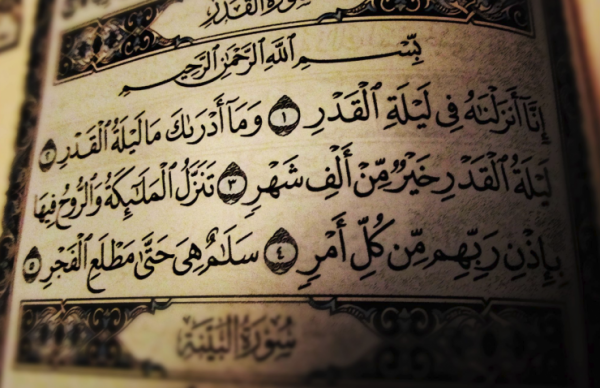 سُورَةُ الْقَدْرِ
بِسْمِ اللَّهِ الرَّحْمَٰنِ الرَّحِيمِ
إِنَّآ أَنزَلْنَٰهُ فِى لَيْلَةِ ٱلْقَدْرِ ١ وَمَآ أَدْرَىٰكَ مَا لَيْلَةُ ٱلْقَدْرِ ٢
لَيْلَةُ ٱلْقَدْرِ خَيْرٌ مِّنْ أَلْفِ شَهْرٍ ٣ تَنَزَّلُ ٱلْمَلَٰٓئِكَةُ وَٱلرُّوحُ فِيهَا
بِإِذْنِ رَبِّهِم مِّن كُلِّ أَمْرٍ ٤ سَلَٰمٌ هِىَ حَتَّىٰ مَطْلَعِ ٱلْفَجْرِ ٥
سُورَةُ الْبَيِّنَةِ